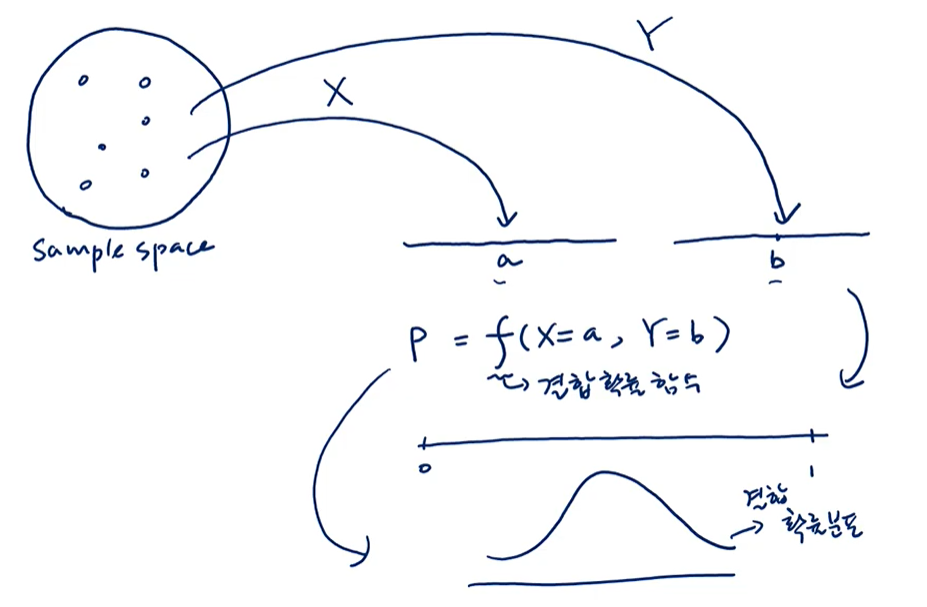 Y
X
sample space
a
b
P = f(X=a, Y=b)
→ 결합 확률 함수
0
1
결합
→ 확률분포